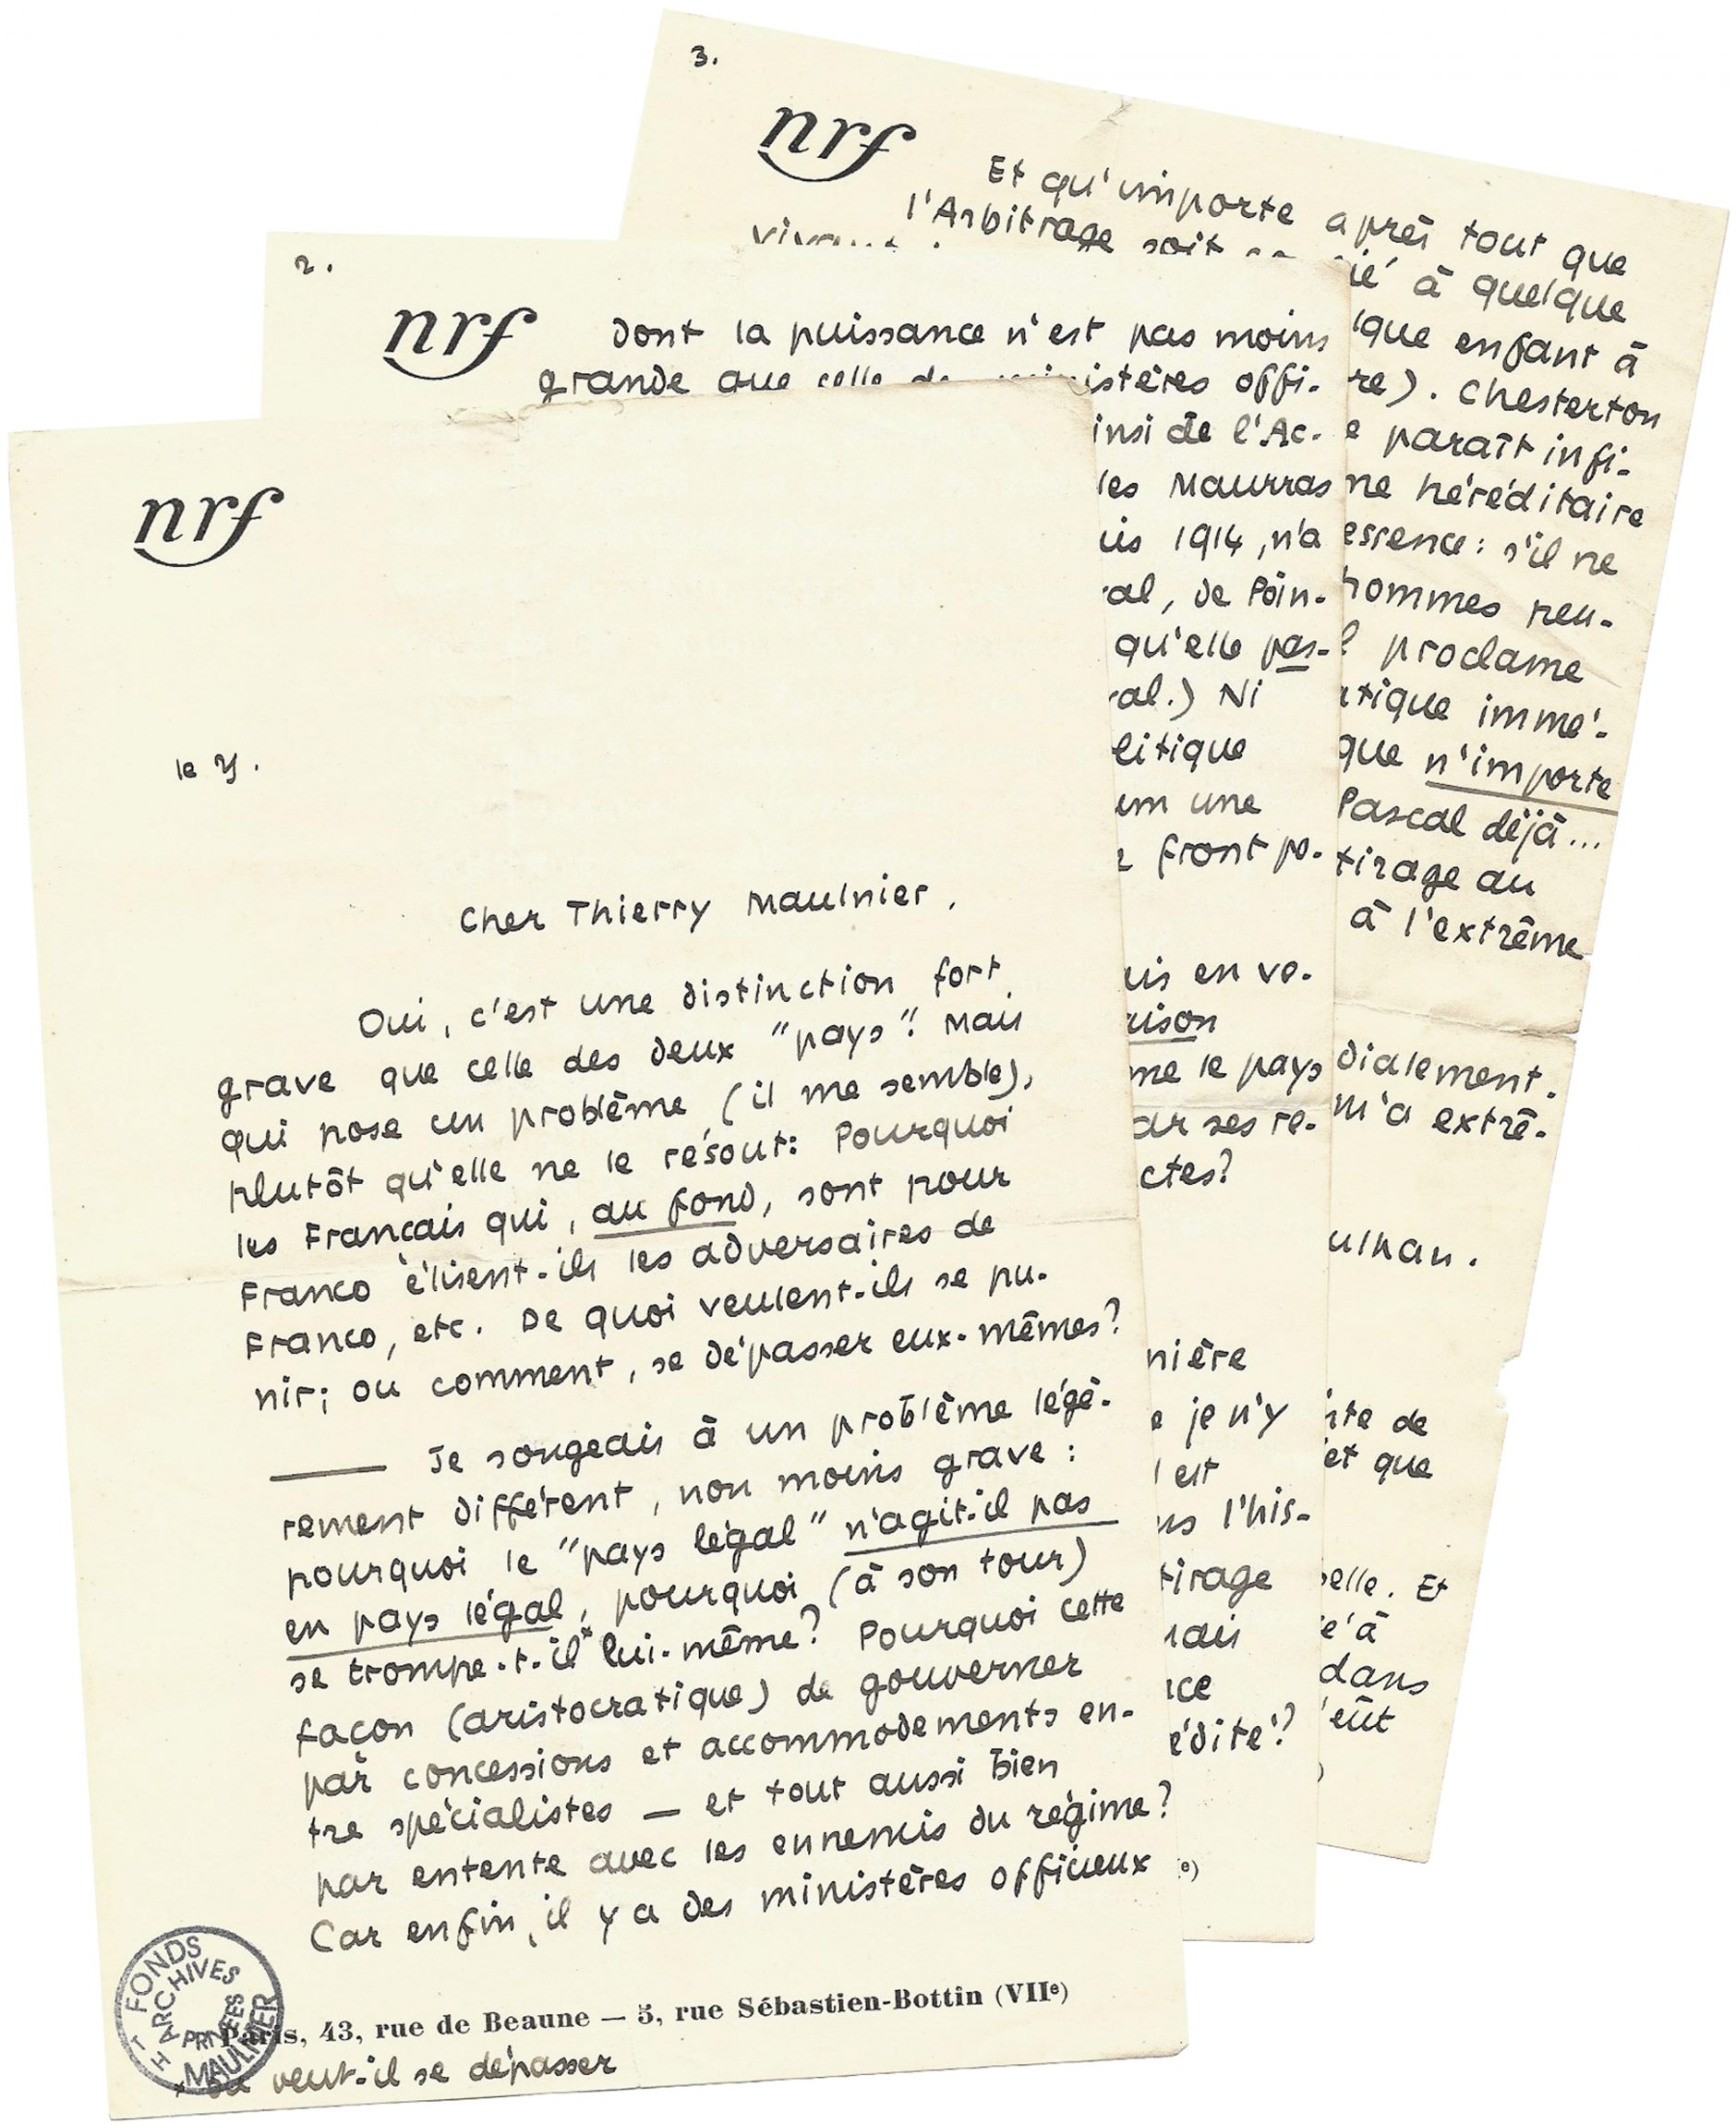 3.
nrf
Et qu'importe après tout que
l'Arbitrage soit à quelque
que enfant à
re). Chesterton
e paraît infi-
ne héréditaire
essence : s'il ne
hommes peu-
proclame
tique immé-
que n'importe
Pascal déjà...
tirage au
à l'extrême
dialement.
m'a extrê-
ulhan.
ite de
et que
elle. Et
é à
dans
eût
2.
nrf
Dont la puissance n'est pas moins
grande que celle de ministères offi-
insi de l'Ac-
les Maurras
uis 1914, n'a
al, de Poin-
qu'elle pas-
al.) Ni
litique
um une
front po-
uis en ve-
aison
me le pays
ar ses re-
ctes?
nière
e je n'y
est
ns l'his-
tirage
mais
nce
édité?
e)
nrf
le y.
Cher Thierry Maulnier,
Oui, c'est une distinction fort
grave que celle des deux "pays". Mais
qui pose un problème (il me semble),
plutôt qu'elle ne le résout: Pourquoi
les Français qui, au fond, sont pour
Franco élisent-ils les adversaires de
Franco, etc. De quoi veulent-ils se pu-
nir; ou comment, se dépasser eux-mêmes?
— Je songeais à un problème légè-
rement différent, non moins grave :
pourquoi le "pays légal" n'agit-il pas
en pays légal, pourquoi (à son tour)
se trompe-t-il* lui-même? Pourquoi cette
façon (aristocratique) de gouverner
par concessions et accommodements en-
tre spécialistes — et tout aussi bien
par entente avec les ennemis du régime?
Car enfin, il y a des ministères officieux
Paris, 43, rue de Beaune — 5, rue Sébastien-Bottin (VIIe)
* ou veut-il se dépasser
FONDS
ARCHIVES
PRIVÉES
TH MAULNIER